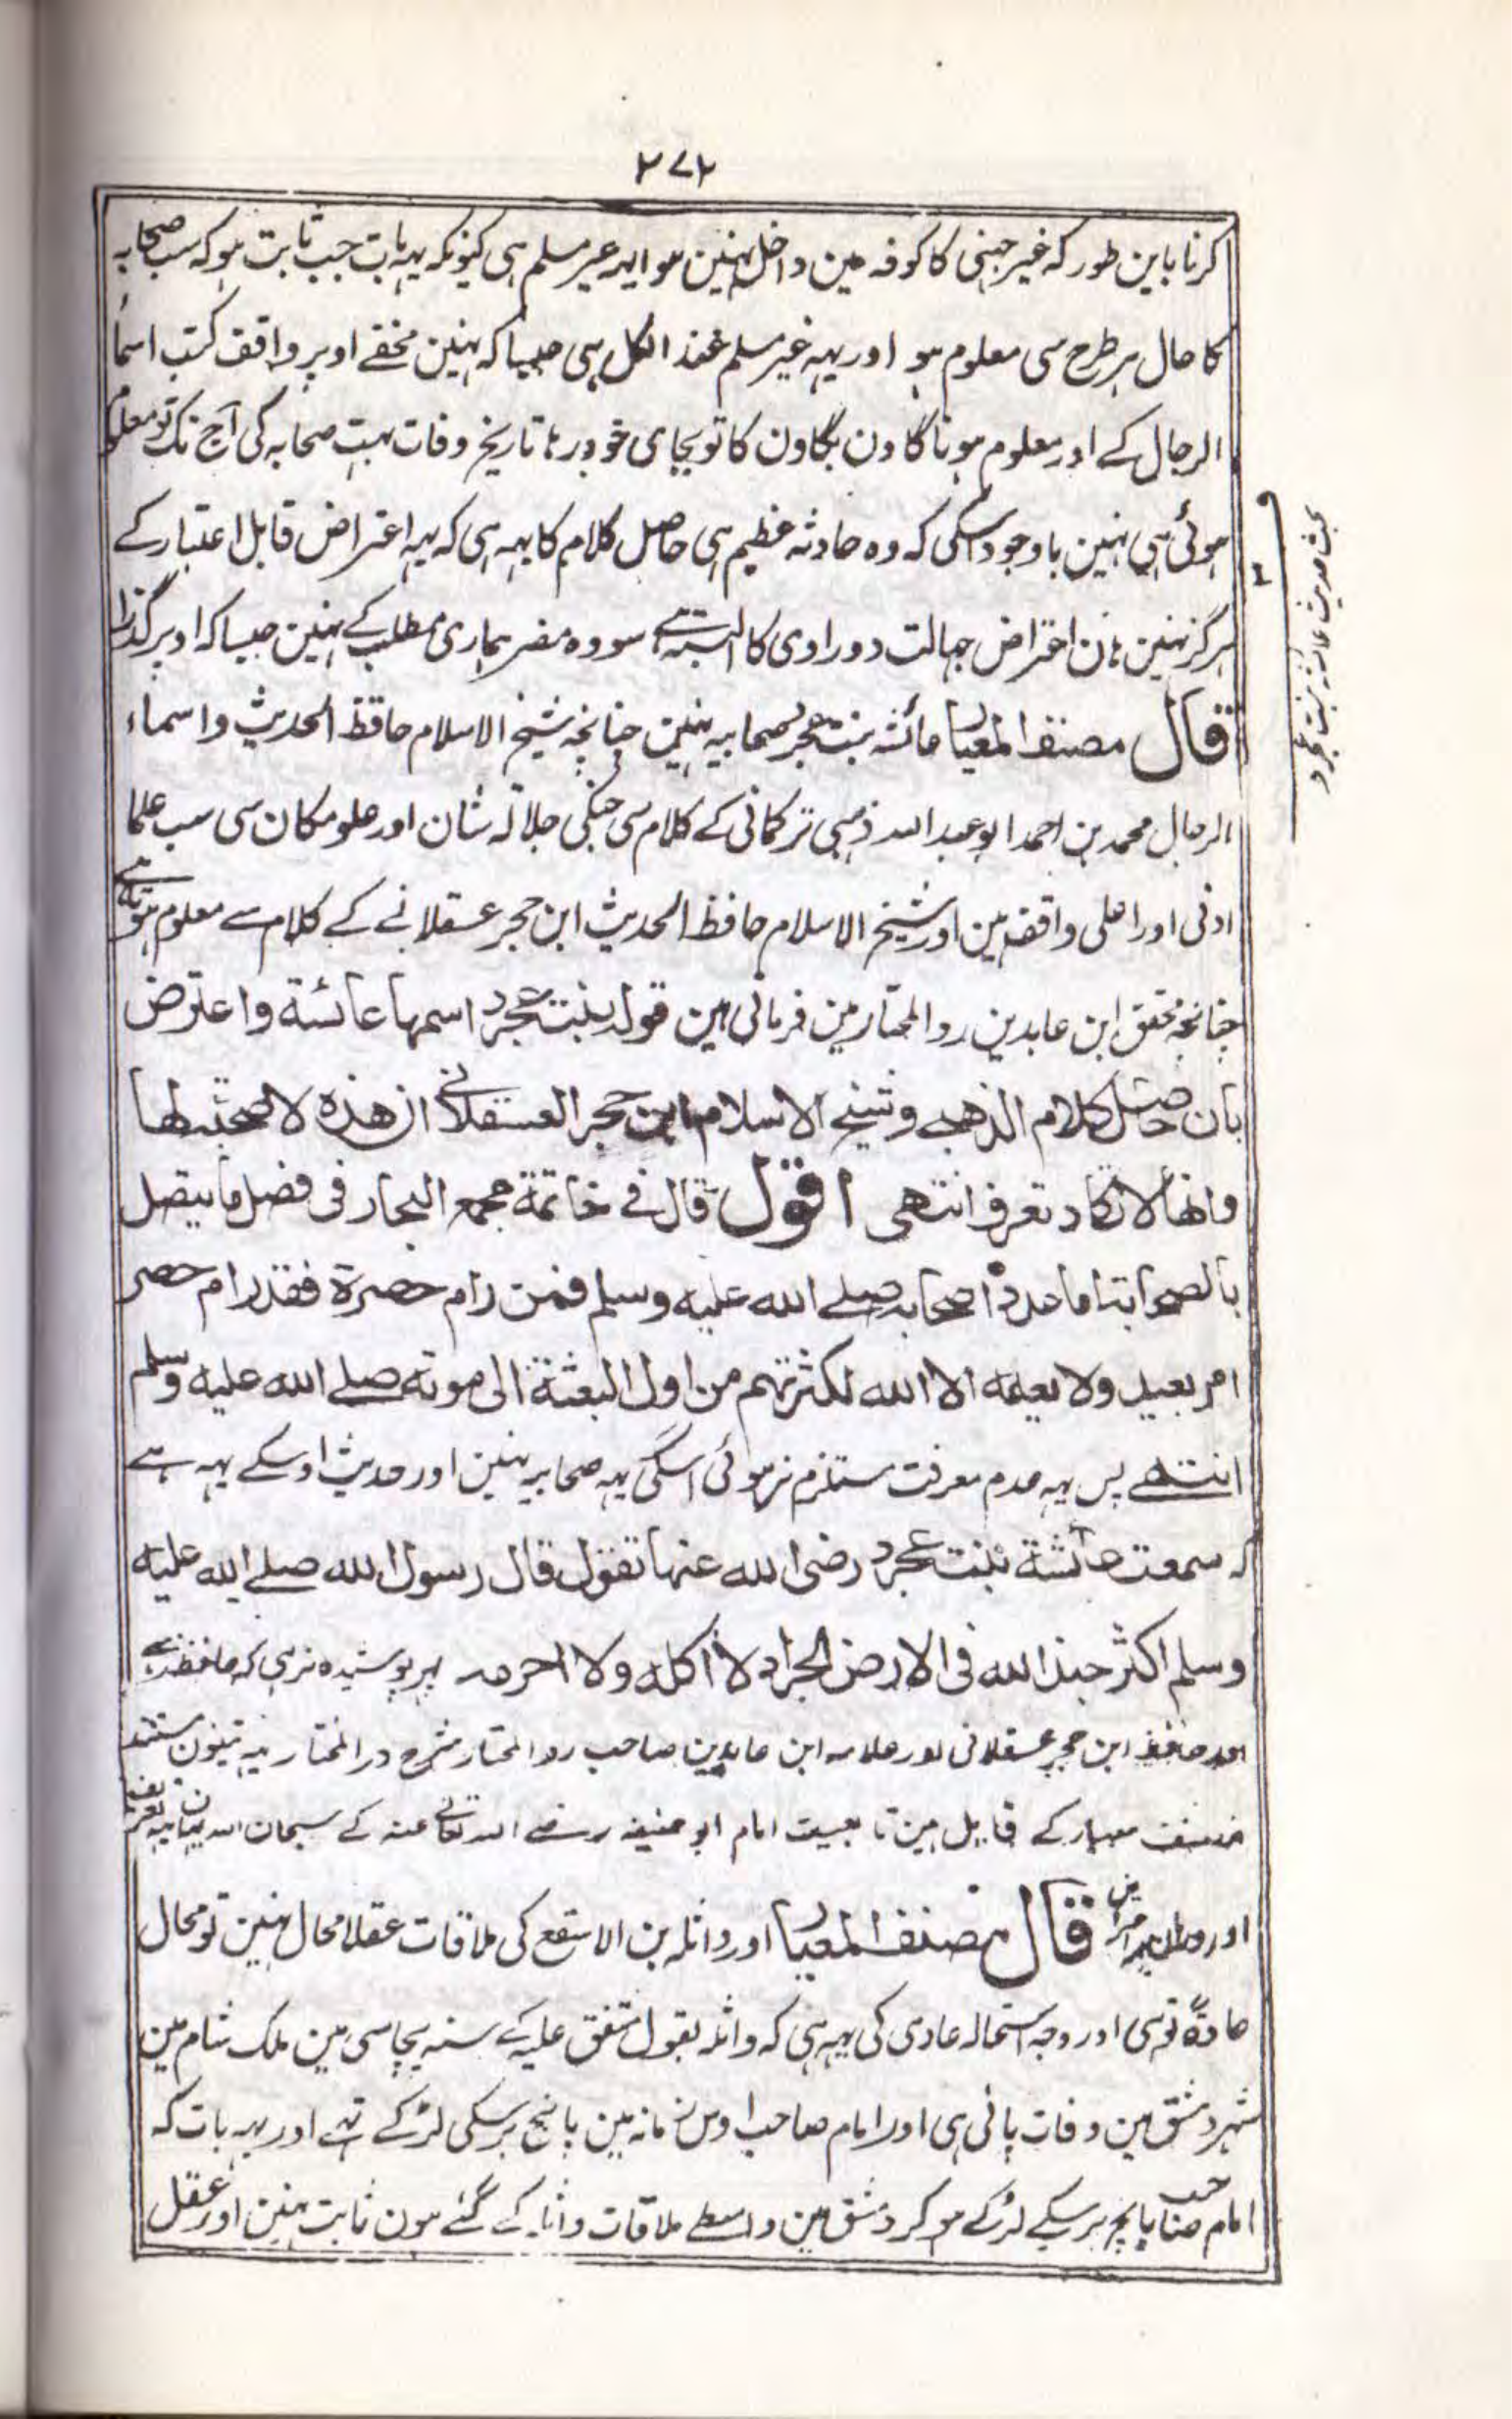 ۲۷۲
کرنا باین طور کہ غیر جہنی کا کوفہ مین داخل نہین ہوا یہہ غیر مسلم ہی کیونکہ یہہ بات جب ثابت ہو کہ سب صحابہ
کا حال ہر طرح سی معلوم ہو اور یہہ غیر مسلم عند الکل ہی جیسا کہ نہین مخفے اوپر واقف کتب اسماء
الرجال کے اور معلوم ہونا گا ون بگاون کا تو بجای خود رہا تاریخ وفات بہت صحابہ کی آج تک تو معلوم
ہوئی ہی نہین باوجود اسکی کہ وہ حادثہ عظیم ہی حاصل کلام کا یہہ ہی کہ یہہ اعتراض قابل اعتبار کے
ہرگز نہین ہان اعتراض جہالت دو راوی کا البتہ ہے سو وہ مضر ہماری مطلب کے نہین جیسا کہ اوپر گذرا
قال مصنف المعیار عائشہ بنت عجرد صحابیہ نہین چنانچہ شیخ الاسلام حافظ الحدیث و اسماء
الرجال محمد بن احمد ابو عبد اللہ ذہبی ترکمانی کے کلام سی جنکی جلالہ شان اور علو مکان سی سب علما
ادنی اور اعلی واقف ہین اور شیخ الاسلام حافظ الحدیث ابن حجر عسقلانے کے کلام سے معلوم ہوتا ہے
چنانچہ محقق ابن عابدین رد المحتار مین فرماتی ہین قولہ بنت عجرد اسمہا عائشة واعترض
بان حاصل کلام الذهبی وشیخ الاسلام ابن حجر العسقلانے ان هذه لا صحبة لها
وانها لا تکاد تعرف انتهی اقول قال فے خاتمة مجمع البحار فی فصل ما یتصل
بالصحابة اما عدد اصحابہ صلے الله علیه وسلم فمن رام حصره فقد رام حصر
امر بعید ولا یعلمه الا الله لکثرتهم من اول البعثة الی موته صلے الله علیه وسلم
انتهے پس یہہ عدم معرفت مستلزم نہ ہوئی اسکی یہہ صحابیہ نہین اور حدیث اوسکے یہہ ہے
کہ سمعت عائشة بنت عجرد رضی الله عنها تقول قال رسول الله صلے الله علیه
وسلم اکثر جند الله فی الارض الجراد لا آکله ولا احرمه پہر پوشیدہ نرہی کہ حافظ ذہبے
اور حافظ ابن حجر عسقلانی اور علامہ ابن عابدین صاحب رد المحتار شرح در المختار یہہ تینون مستند
مصنف معیار کے قایل ہین تابعیت امام ابو حنیفہ رضے اللہ تعالے عنہ کے سبحان اللہ
اور قال مصنف المعیار اور واثلہ بن الاسقع کی ملاقات عقلا محال نہین تو محال
عادةً تو ہی اور وجہ استحالہ عادی کی یہہ ہی کہ واثلہ بقول متفق علیہ کے سنہ پچاسی مین ملک شام مین
شہر دمشق مین وفات پائی ہی اور امام صاحب اوس زمانہ مین پانچ برسکی لڑکے تہے اور یہہ بات کہ
امام صاحب پانچ برسکے لڑکے ہو کر دمشق مین واسطے ملاقات واثلہ کے گئے ہون ثابت نہین اور عقل
بحث حدیث عائشہ بنت عجرد